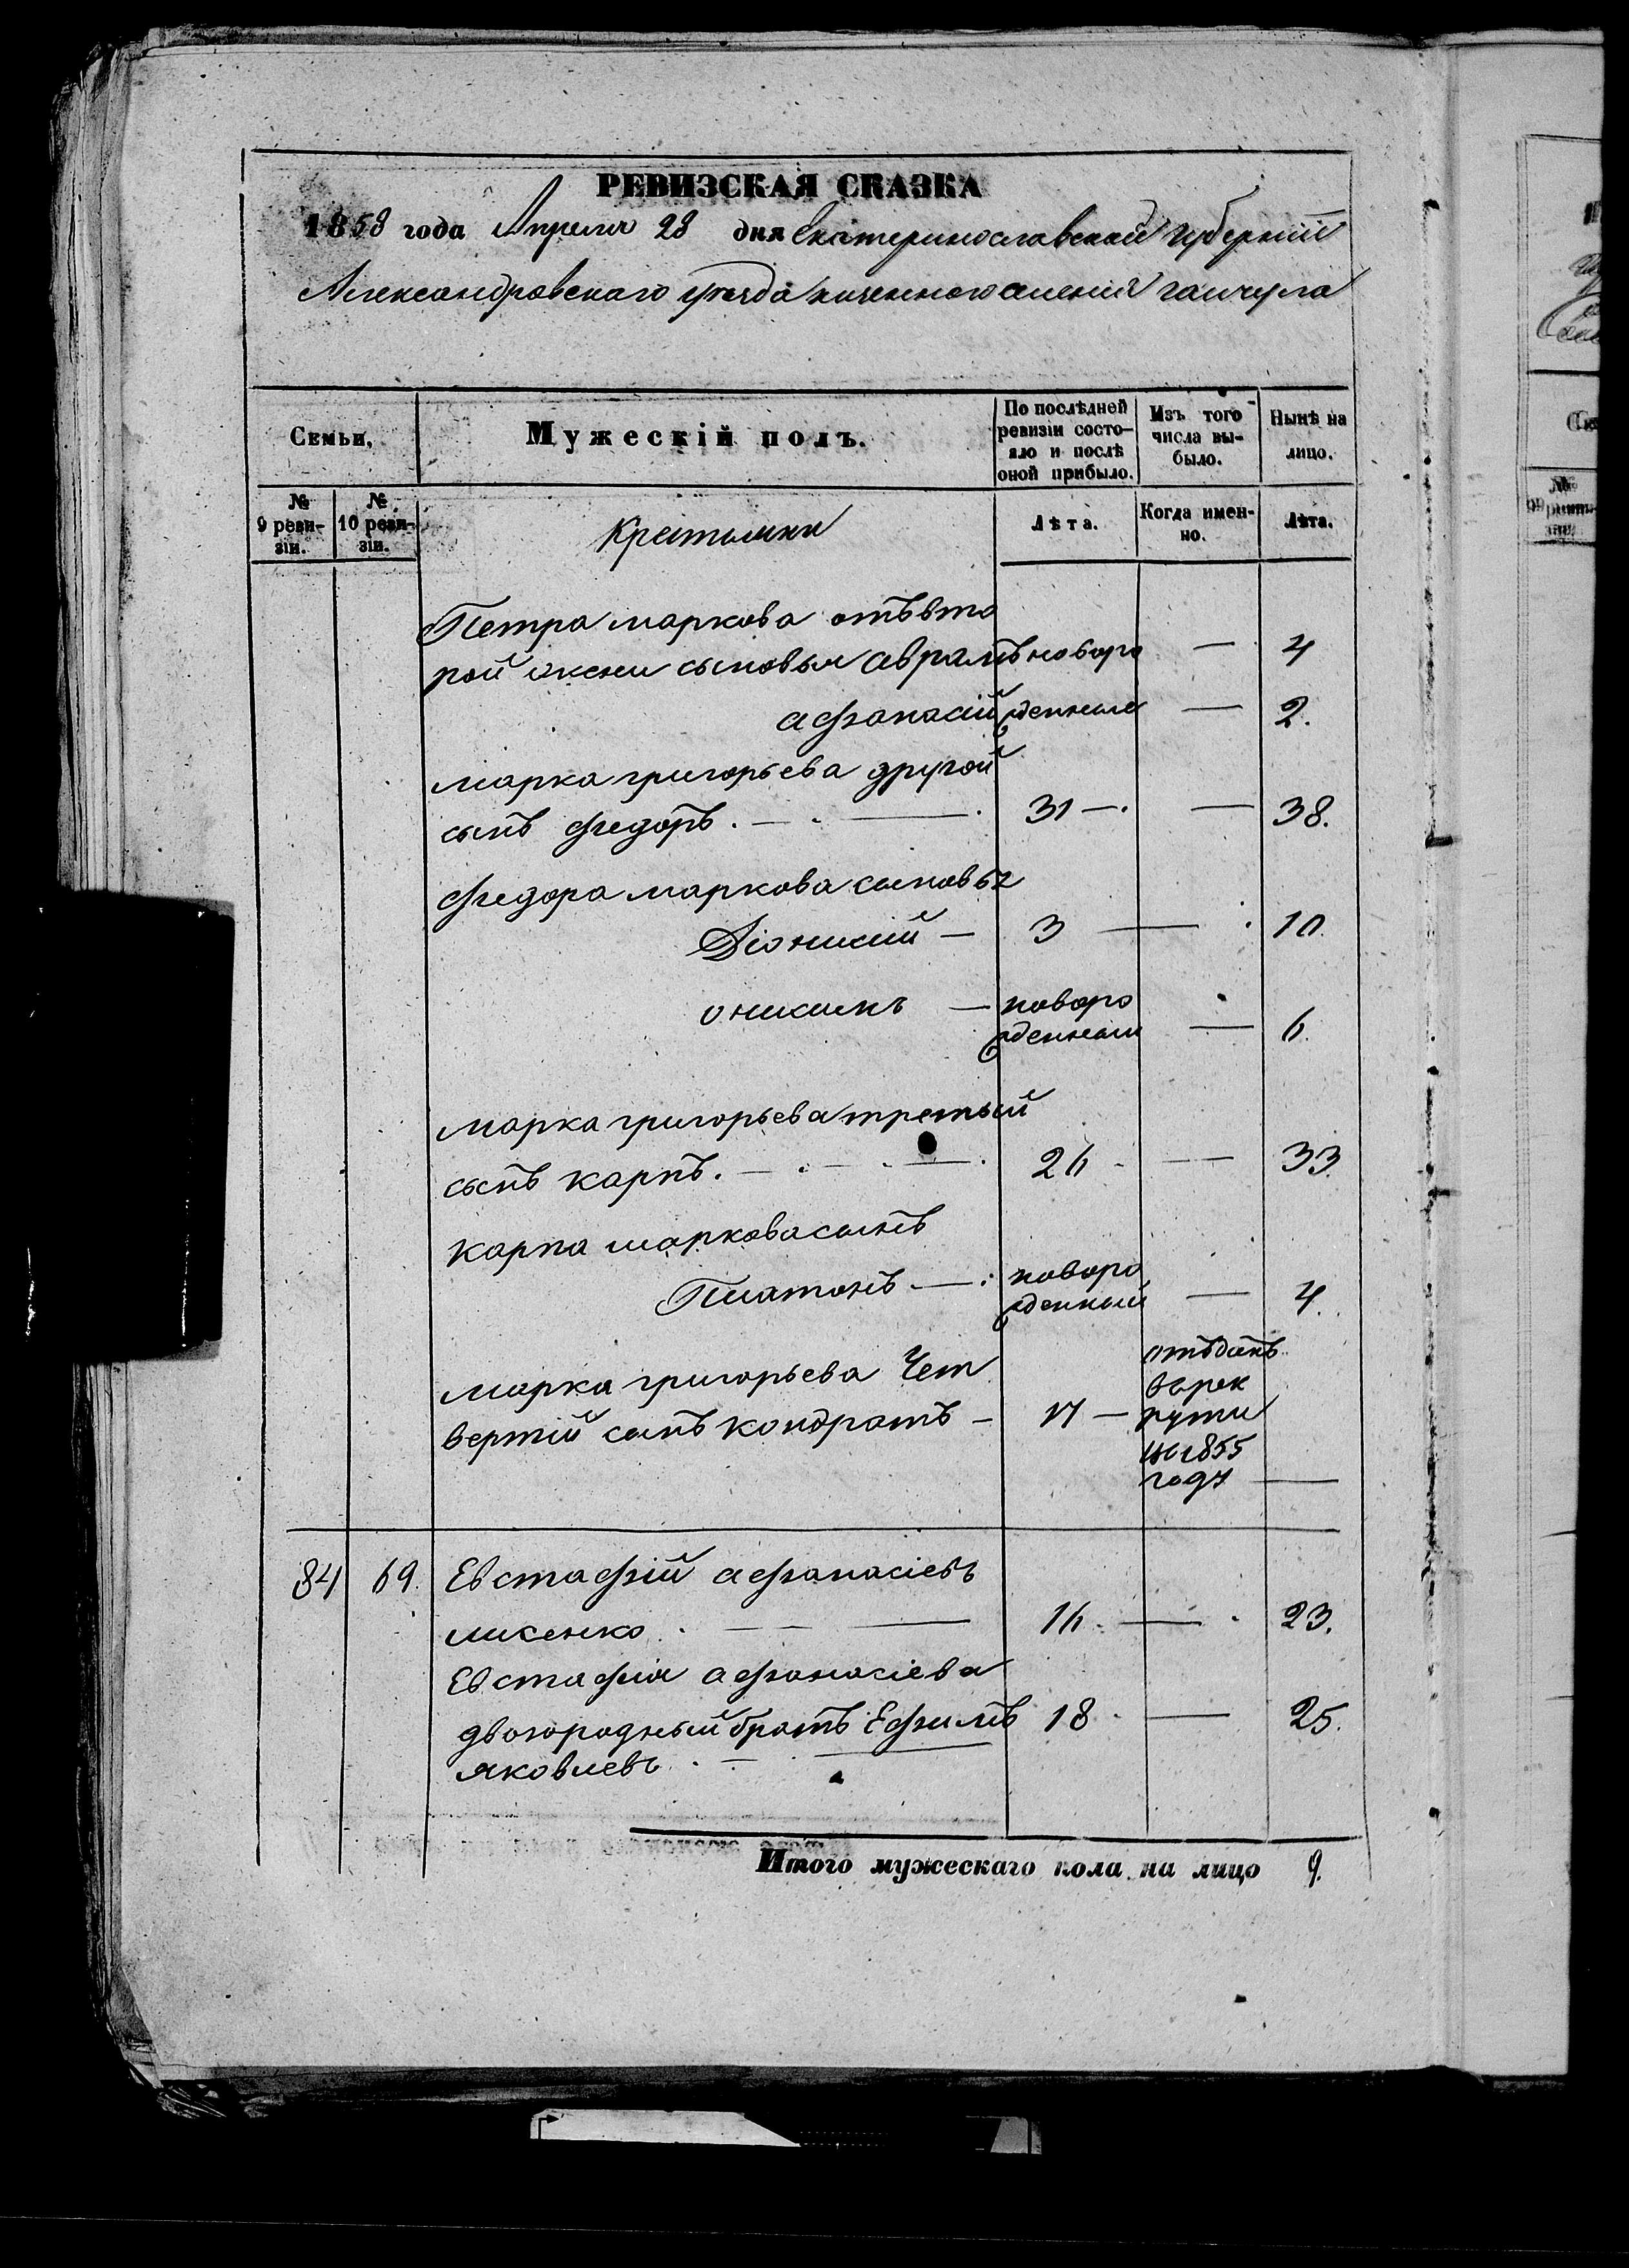 РЕВИЗСКАЯ СКАЗКА
1858 года Апреля 28 дня Екатеринославской Губерніи
Александровскаго уезда казенного селенія гайчула
Семьи.
Мужескій полъ.
По послѣдней ревизіи состо-яло и послѣ оной прибыло.
Изъ того числа вы-было.
Нынѣ на лицо.
№ 9 реви-зіи.
№ 10 реви-зіи.
Крестьяни
Лѣта.
Когда имен-но.
Лѣта.
Петра маркова отъ вто
рой жены сыновья аврамъ новоро — 4
афанасій жденные — 2.
марка григорьева другой
сынъ федоръ. — 31 — — 38.
федора маркова сыновья
Діонисій — 3 — 10.
онисимъ — новоро
жденный — 6.
марка григорьева третый
сынъ карпъ. — 26 — 33
карпа маркова сынъ
Платонъ — новоро
жденный — 4.
марка григорьева Чет
вертій сынъ кондратъ — 17 —
отъданъ
в рек
руты
въ 1855
году —
84 69. Евстафій афанасіевъ
лисенко. — 16. — 23.
Евстафія афанасіева
двоюродный братъ Ефимъ 18 — 25.
яковлевъ. —
Итого мужескаго пола на лицо 9.